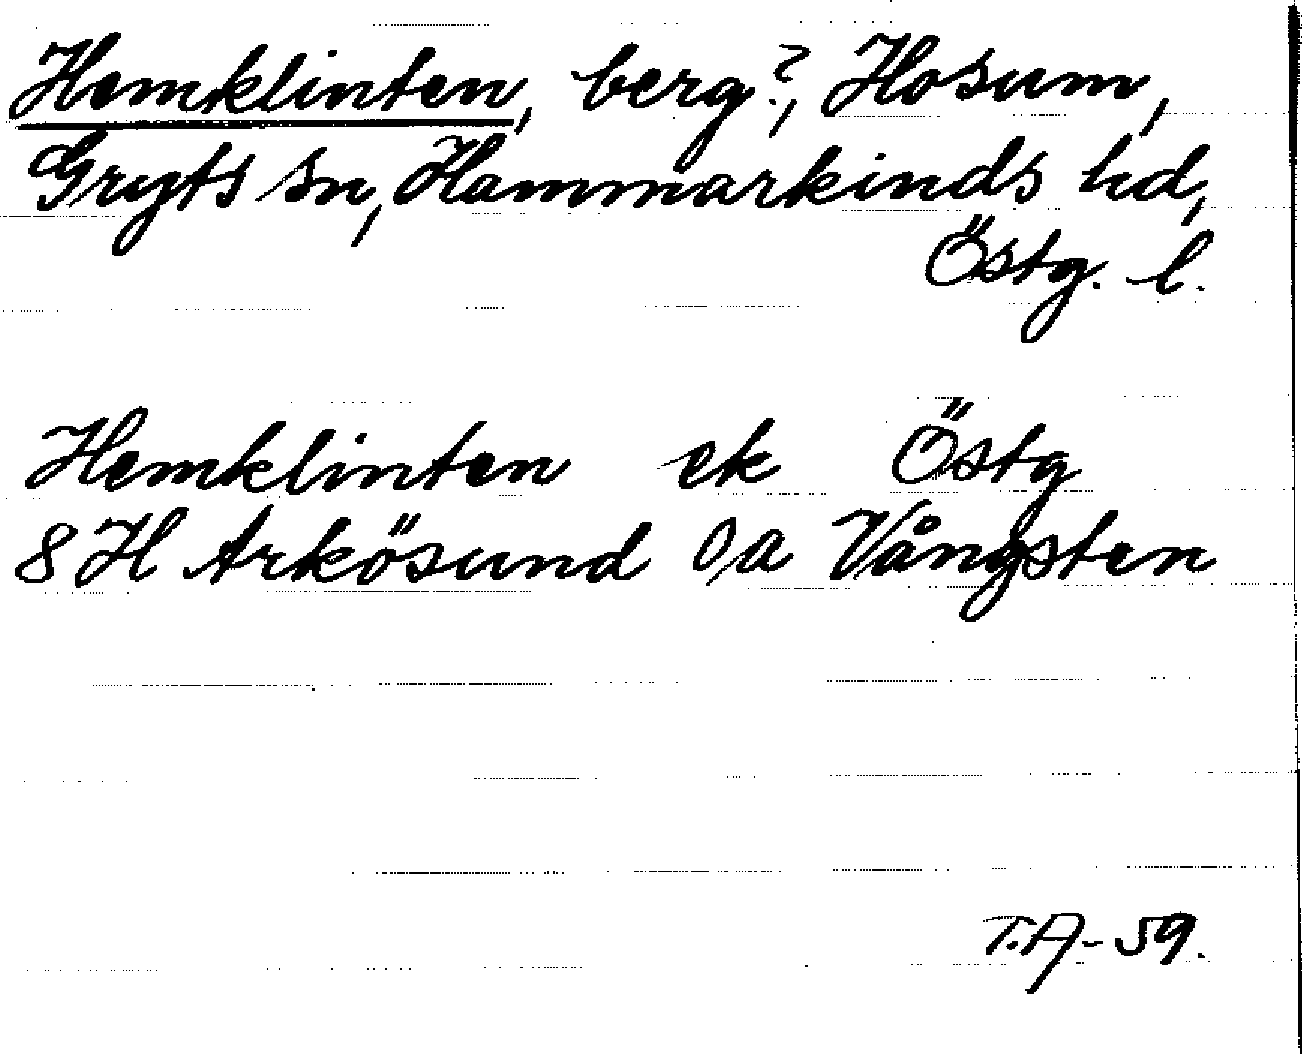 Hemklinten, berg?, Hosum,
Gryts sn, Hammarkinds hd,
Östg. l.
Hemklinten ek Östg
8 H Arkösund 0/a Vångsten
T.A-59.